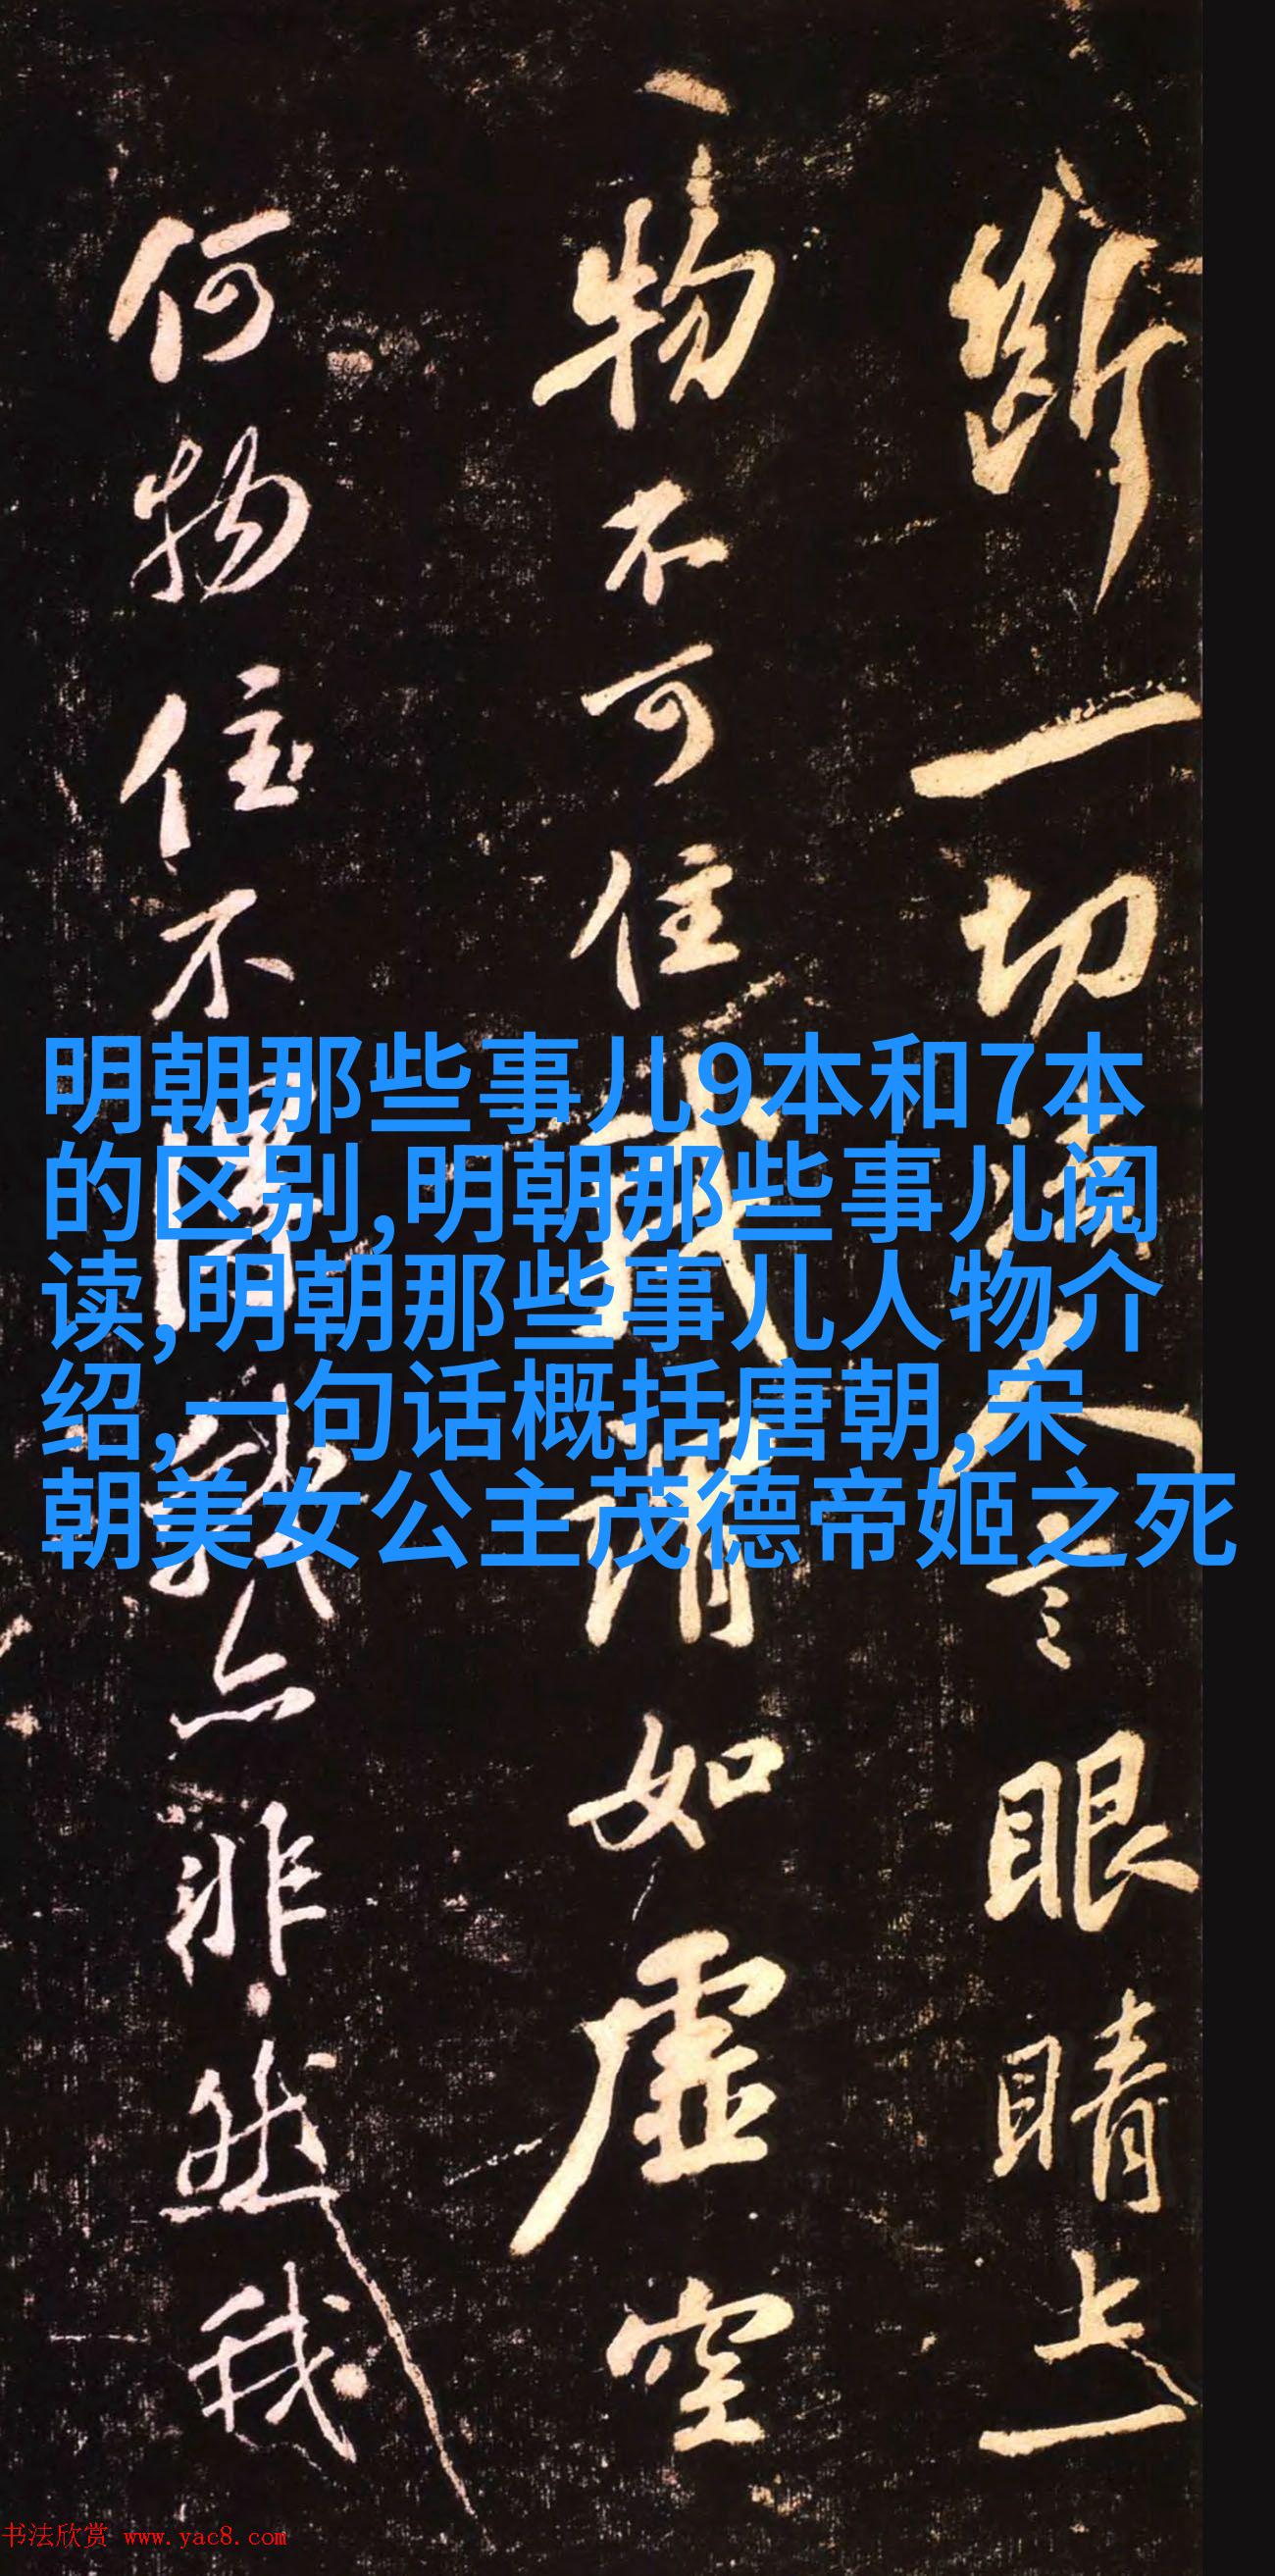 断一切人眼睛上一
物不可住我如虚空
何物住不点非然我
明朝那些事儿9本和7本
的区别,明朝那些事儿阅
读,明朝那些事儿人物介
绍,一句话概括唐朝,宋
朝美女公主茂德帝姬之死
书法欣赏 www.yac8.com